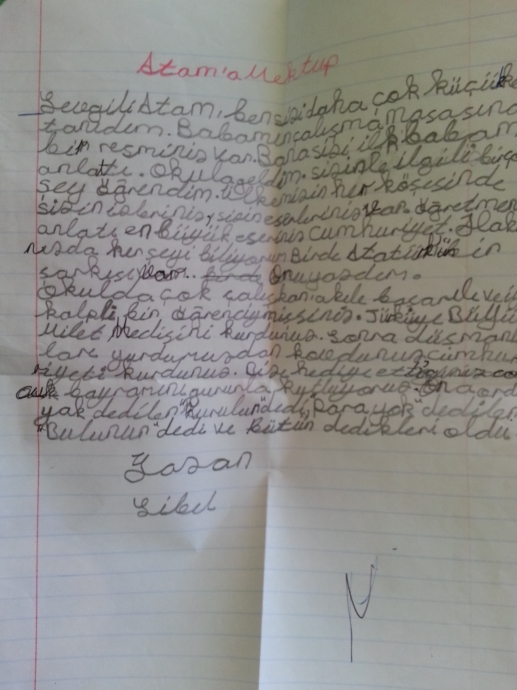 Atam'a Mektup
Sevgili Atam, ben sizi daha çok küçükke
tanıdım. Babamın çalışma masasınd
bir resminiz var. Bana sizi ilk babam
anlattı. Okula geldim. sizinle ilgili birço
şey öğrendim. ülkemizin her köşesinde
sizin izleriniz, sizin eserleriniz var. öğretmen
anlatı en büyük eseriniz cumhuriyet. Hak
nızda herşeyi biliyorum. Birde Atatürk in
şarkısı var. Onu yazdım.
Okulda çok çalışkan, akıllı başarılı ve iyi
kalpli bir öğrenciymişsiniz. Türkiye Büyü
Milet Meclisini kurdunuz. Sonra düşman
ları yurdumuzdan kovdunuz cumhur
riyeti kurdunuz. Bize hediye ettiğiniz çoc
cuk bayramını gururla kutluyoruz. On ordu
yok dediler "Kurulur" dedi, "para yok" dediler
"Bulunur" dedi ve bütün dedikleri oldu
Yazan
Sibel